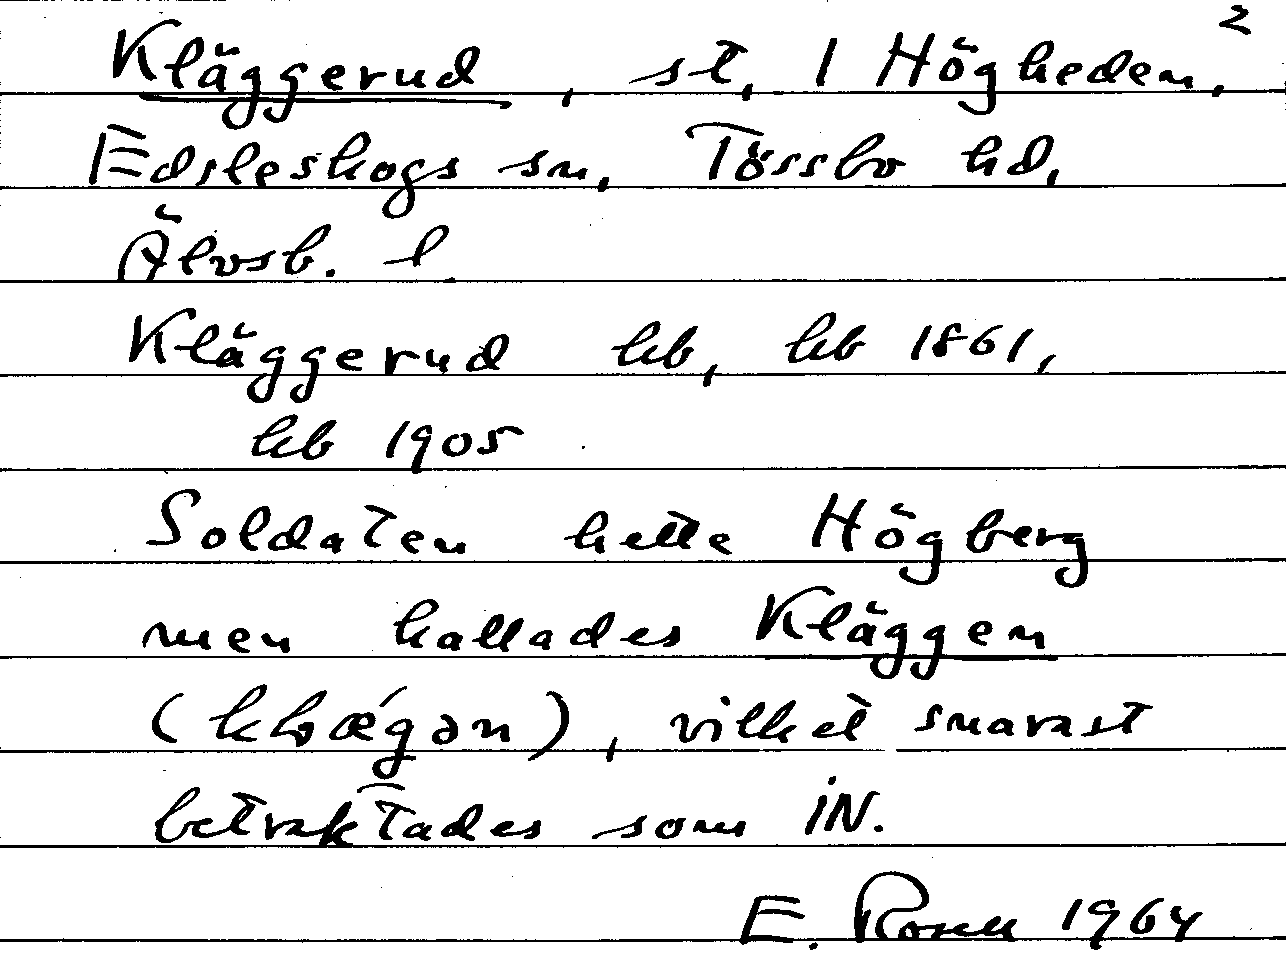 2
Kläggerud, st, / Högheden,
Edsleskogs sn, Tössbo hd,
Älvsb. l
Kläggerud kb, kb 1861,
kb 1905
Soldaten hette Högberg
men kallades Kläggen
vilket snarast
betraktades som iN.
E. Rosell 1964